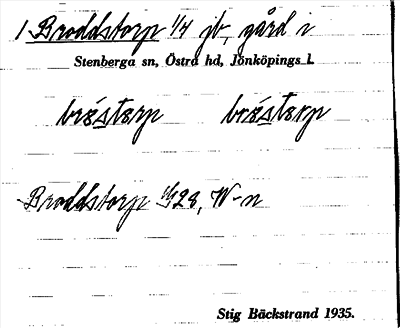 1 Broddstorp 1/4 jb, gård i
Stenberga sn, Östra hd, Jönköpings l.
bro̍sterp bro̍sterp
Broddstorp 28, W-n
Stig Bäckstrand 1935.